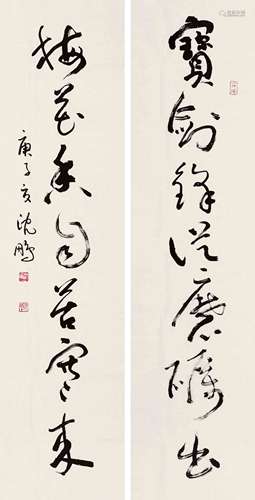 寶劍鋒從磨礪出
梅花香自苦寒來
庚子夏沈鵬